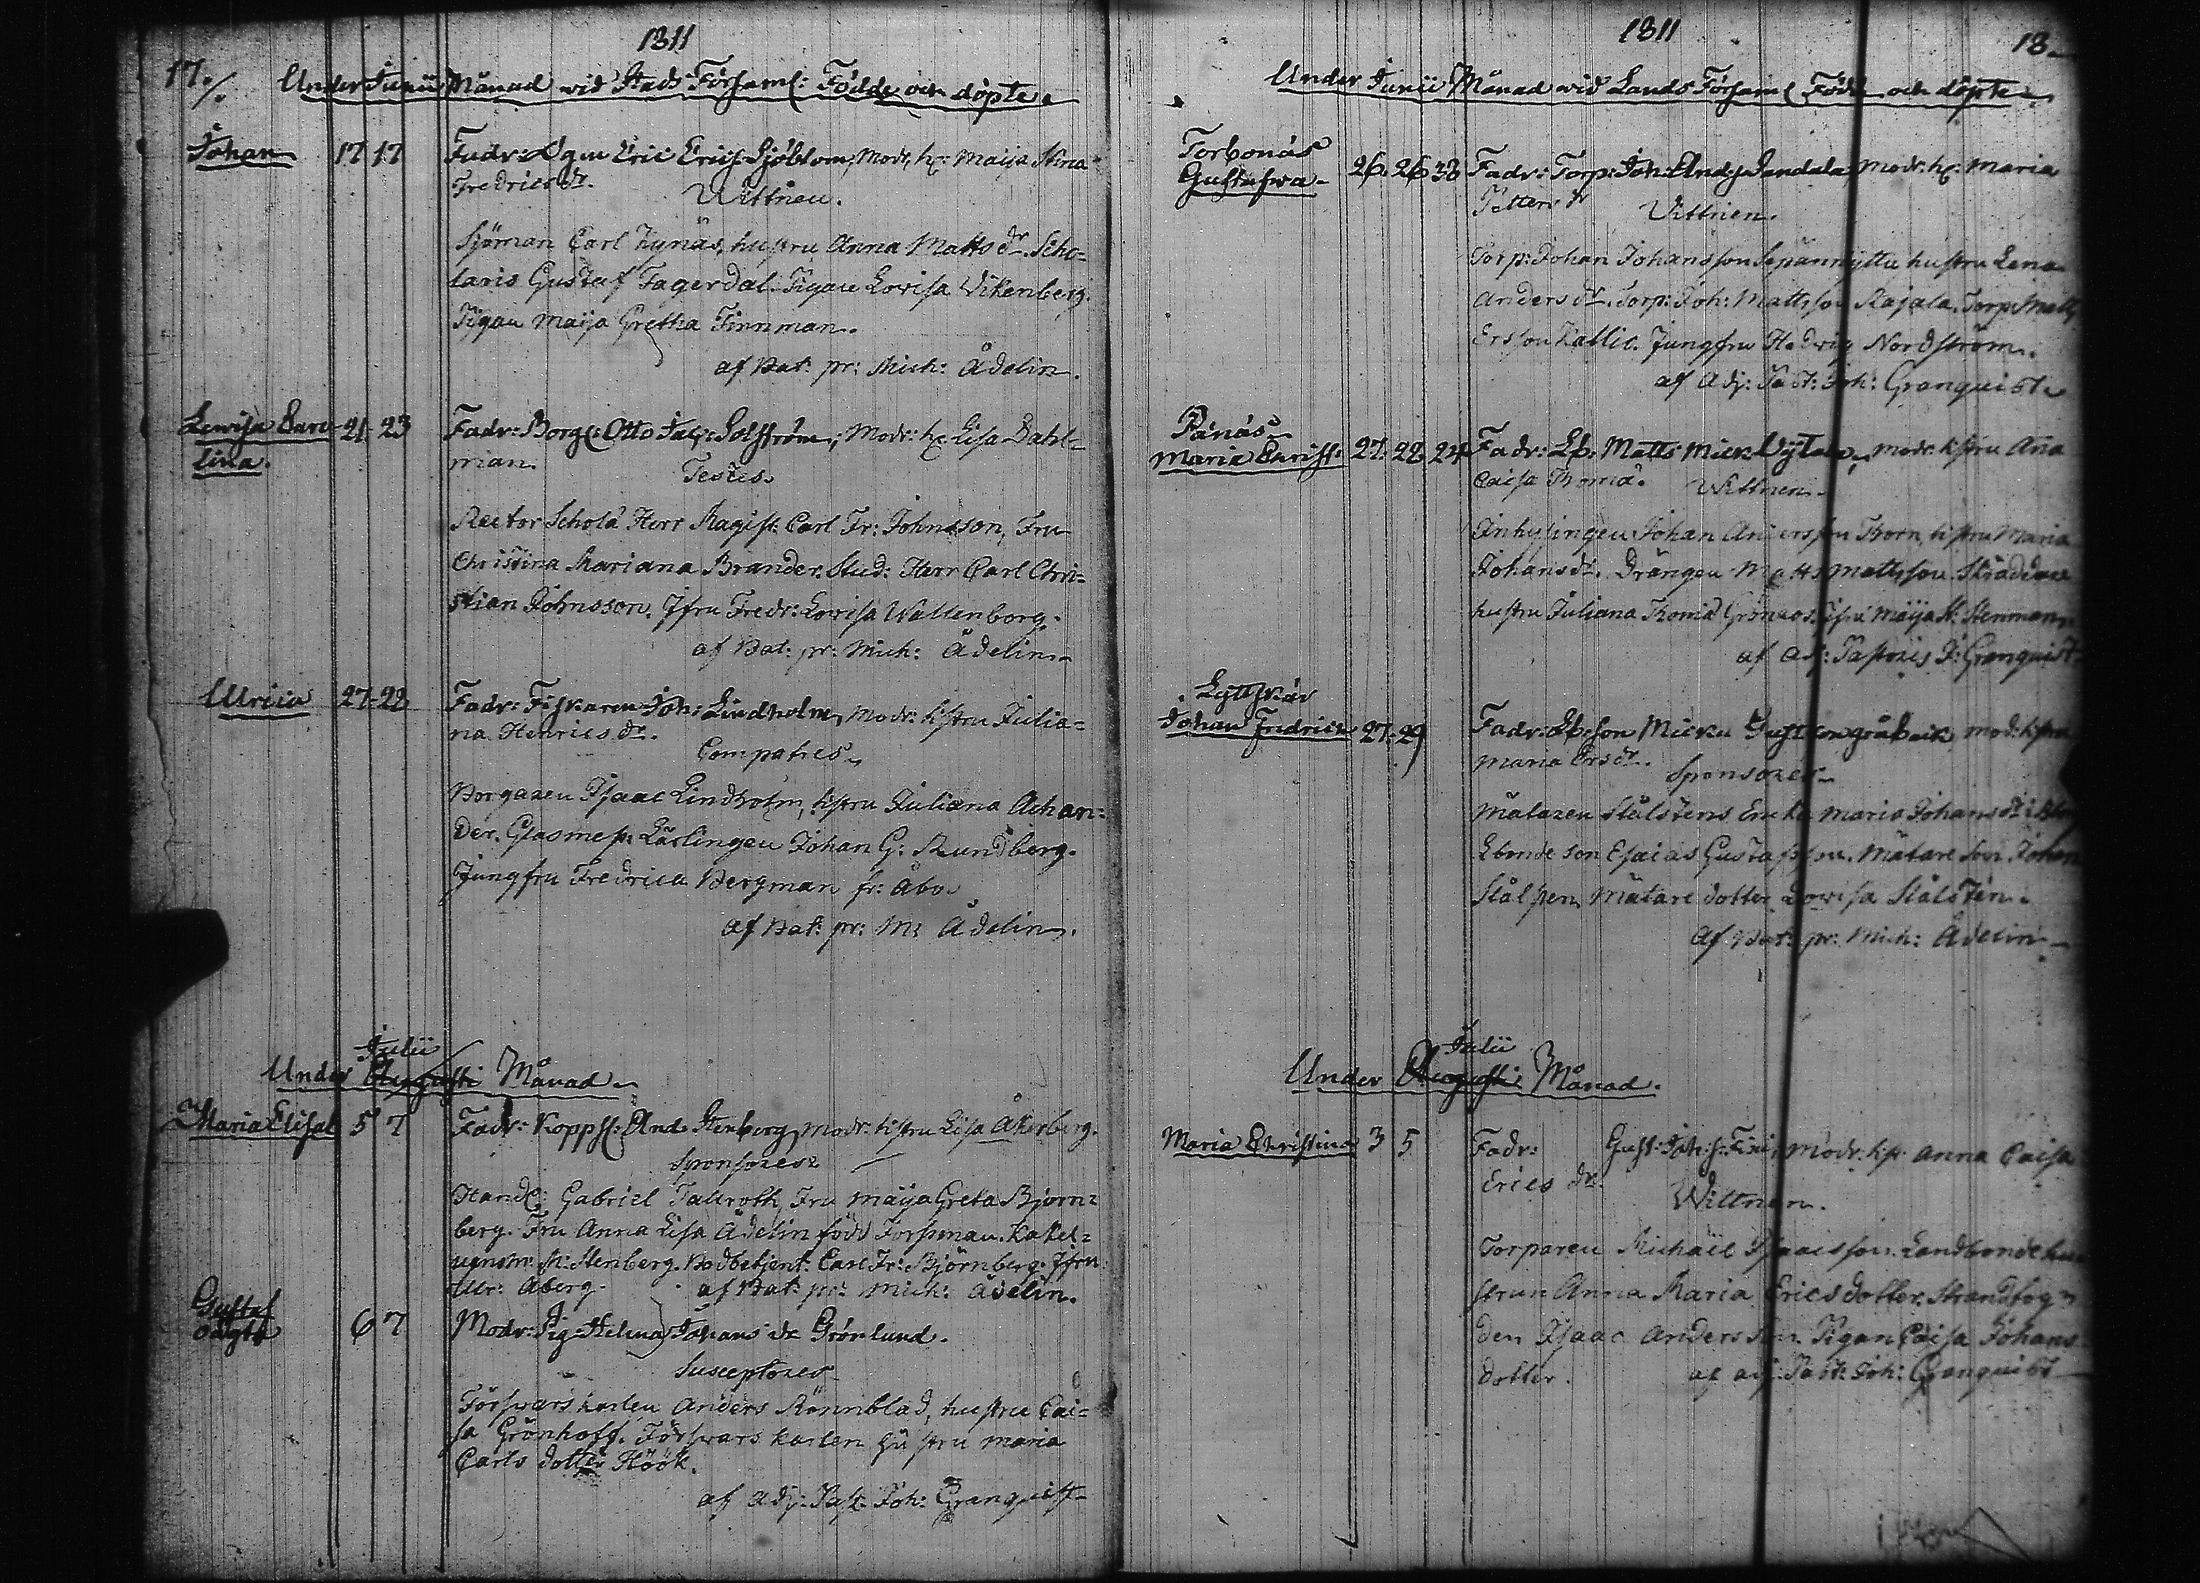 1811
17./.
Under Junii Månad wid Stads Församl: Födde och döpte.
Johan 17 17 Fadr: Eric Erics: Sjöblom, Modr h: Maija Stina
Fredricsdr.
Wittnen.
Sjöman Carl Kynäs, hustru Anna Mattsdr. Scho=
laris Gustaf Fagerdal. Pigan Lovisa Wikenberg.
Pigan Maija Gretha Finnman.
af Bat: pr: Mich: Ådelin.
Lovisa Caro= 21 23 Fadr: Borg: Otto Jac: Solström, Modr: h: Lisa Dahl=
lina. man.
Testes.
Rector Scholæ Herr Magist: Carl Fr: Johnsson, Fru
Christina Mariana Brander. Stud: Herr Carl Chri=
stian Johnsson. Jfru Fredr: Lovisa Wallenborg.
af Bat: pr: Mich: Ådelin
Ulrica 27 28 Fadr: Fiskaren Joh: Lindholm, Modr: hstru Julia=
na Henricsdr.
Compatres.
Borgaren Isaac Lindholm, hstru Juliana Achan=
der. Glasmest: Lärlingen Johan G: Rundberg.
Jungfru Fredrica Bergman fr: Åbo.
af Bat: pr: M: Ådelin.
Julii
Under Augusti Månad
Maria Elisab 5 7 Fadr: Koppsl: And: Stenberg, modr: hstru Lisa Åkerberg.
Sponsores
Handl: Gabriel Talroth, Fru Maija Greta Björn=
berg. Fru Anna Lisa Ådelin född Forssman. Kakel=
ugnsm: M: Stenberg. Bodbetjent: Carl Fr: Björnberg. Jfru
Ulr: Åberg. af Bat: pr: Mich: Ådelin.
Gustaf
oägta 6 7 Modr: Pig: Helena Johansdr Grönlund.
Susceptores
Förswarskarlen Anders Rönnblad, hustru Cai=
sa Grönhoff. Förswars karlen hustru Maria
Carls dotter Höök.
af Adj: Past: Joh: Granquist
1811
18
Under Junii Månad wid Lands Församl Födde och döpte
Torbonäs
Gustafwa 26 26 38 Fadr: Torp: Joh: And: Modr: h: Maria
Petters dr
Vittnen.
Torp: Johan Johansson Sepänmyttu hustru Lena
Andersdr. Torp: Joh: Mattsson Rajala. Torp: Matts
Ersson Kallio. Jungfru Hedwig Nordström.
af Adj: Past: Joh: Granquist
Pänäs
Maria Christ: 27 28 24 Fadr: Lb. Matts Mick: modr: hstru Ana
Caisa Thomæ.
Wittnen
Inhysingen Johan Andersson Thorn, hstru Maria
Johansdr. Drängen Matts Mattsson
hustru Juliana Thomæ Jfru Maija St: Stenman
af Adj: Pastoris J: Granquist
Lyttskär
Johan Fredric 27 29 Fadr: Lb: son Mickel Gustfson gråbeik mod: hstru
Maria Ersdr.
Sponsores
Målaren Stålstens Enka Maria Johansdr.
Lbonde son Esaias Gustafsson. Målare son Johan
Stålsten, Målare dotter Lovisa Stålsten.
af Bat: pr: Mich: Ådelin
Julii
Under Augusti Månad.
Maria Christina 3 5 Fadr: Gust: Joh: s: modr. hst. Anna Caisa
Erics dr.
Wittnen.
Torparen Michaël Isaacsson. Landbonde hu=
strun Anna Maria Ericsdotter. Strandfog=
den Isaac Andersson. Pigan Caisa Johans
dotter. af adj: Past: Joh: Granquist